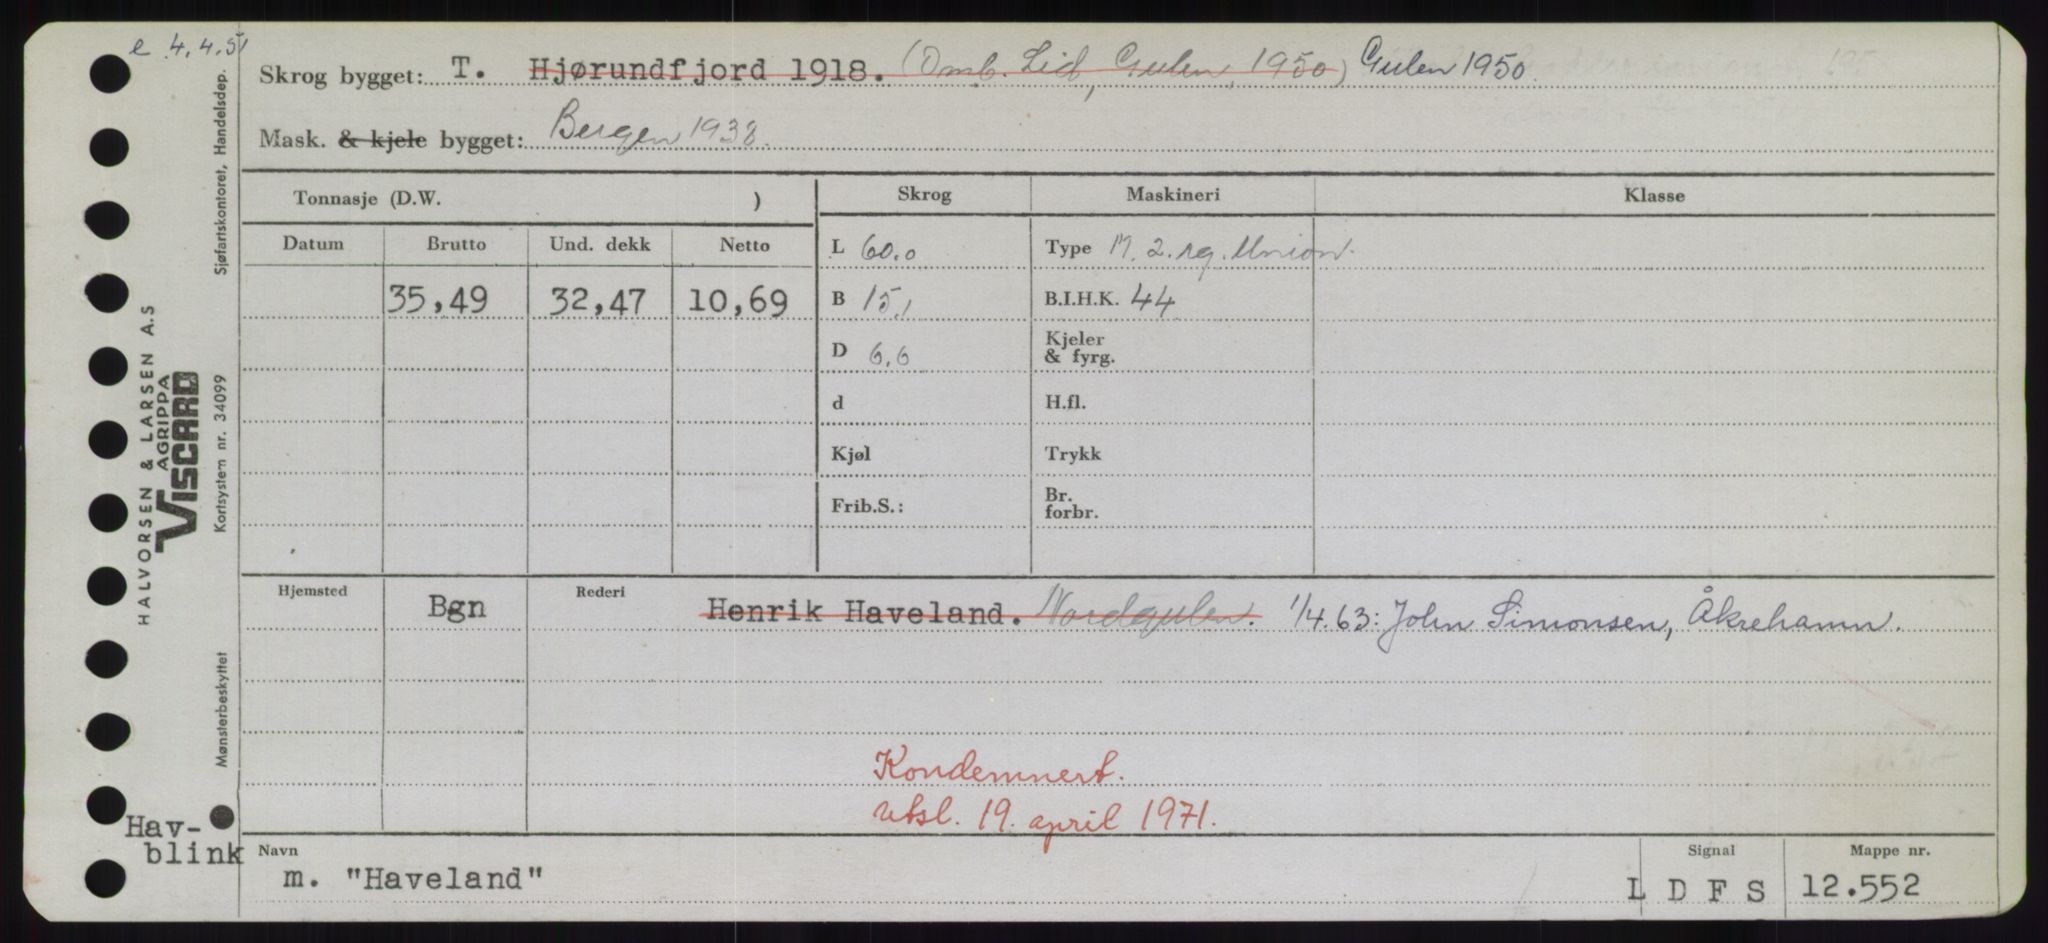 e 4.4.51
Skrog bygget: T. Hjørundfjord 1918. (Omb. Lid, Gulen, 1950) Gulen 1950.
Mask. & kjele bygget: Bergen 1938.
Tonnasje (D.W. )
Skrog Maskineri Klasse
Datum Brutto Und. dekk Netto
L 60.0 Type M. 2. sg. Union.
35,49 32,47 10,69
B 15,1 B.I.H.K. 44
D 6,6 Kjeler
& fyrg.
d H.fl.
Kjøl Trykk
Frib.S.: Br.
forbr.
Hjemsted Bgn Rederi Henrik Haveland. Nordgulen. 1/4.63: John Simonsen, Åkrehamn.
Kondemnert.
utsl. 19. april 1971.
Hav-
blink
Navn Signal Mappe nr.
m. "Haveland" L D F S 12.552
HALVORSEN & LARSEN A.S
AGRIPPA
VISCARD
Kortsystem nr. 34099
Sjøfartskontoret, Handelsdep.
Mønsterbeskyttet